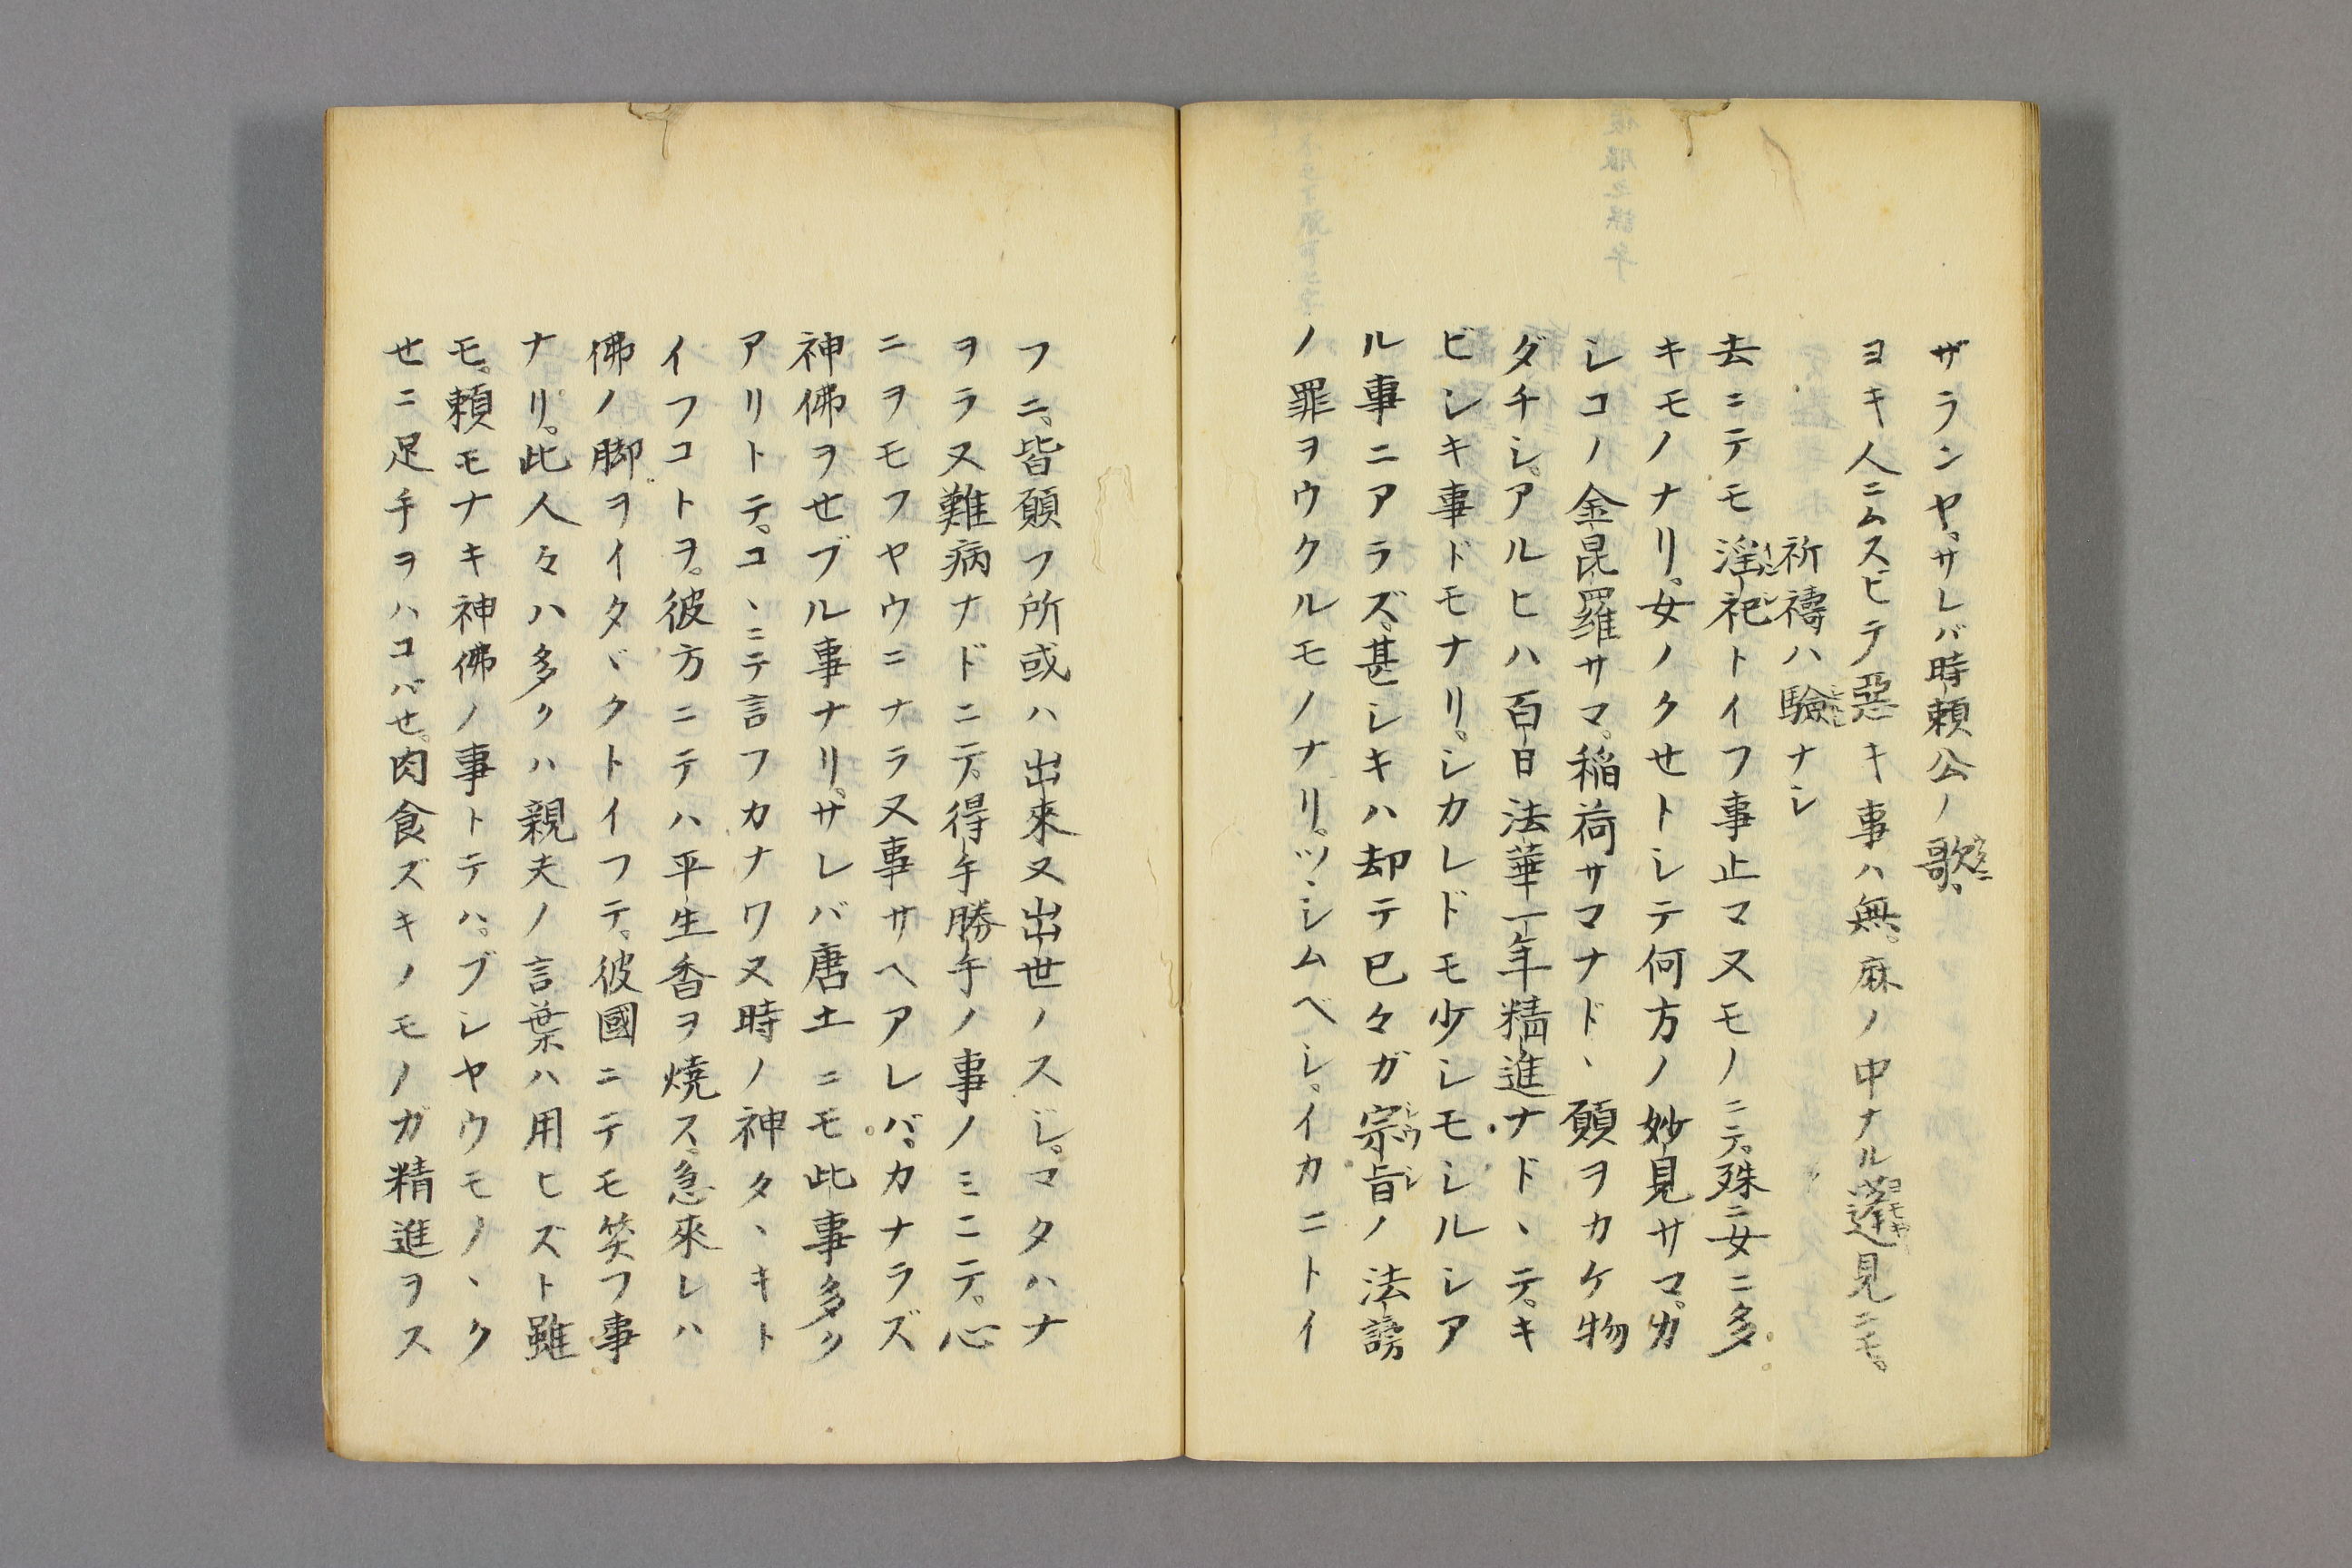 ザランヤ。サレバ時頼公ノ歌、
ヨキ人ニムスビテ惡キ事ハ無。麻ノ中ナル蓬見ニモ。
祈禱ハ驗ナシ
去ニテモ淫祀トイフ事止マヌモノニテ。殊ニ女ニ多
キモノナリ。女ノクセトシテ何方ノ妙見サマ。カ
シコノ金昆羅サマ。稲荷サマナドヽ願ヲカケ物
ダチシ。アルヒハ百日法華一年精進ナドヽテ。キ
ビシキ事ドモナリ。シカレドモ少シモシルシア
ル事ニアラズ。甚シキハ却テ已々ガ宗旨ノ法謗
ノ罪ヲウクルモノナリ。ツヽシムベシ。イカニトイ
フニ。皆願フ所或ハ出來ヌ出世ノスジ。マタハナ
ヲラヌ難病ナドニテ。得手勝手ノ事ノミニテ。心
ニヲモフヤウニナラヌ事サヘアレバ。カナラズ
神佛ヲセブル事ナリ。サレバ唐土ニモ此事多ク
アリトテ。コヽニテ言フカナワヌ時ノ神タヽキト
イフコトヲ。彼方ニテハ平生香ヲ焼ス。急來レハ
佛ノ脚ヲイタヾクトイフテ。彼國ニテモ笑フ事
ナリ。此人々ハ多クハ親夫ノ言葉ハ用ヒズト雖
モ。頼モナキ神佛ノ事トテハ。ブシヤウモノヽク
セニ足手ヲハコバセ。肉食ズキノモノガ精進ヲス